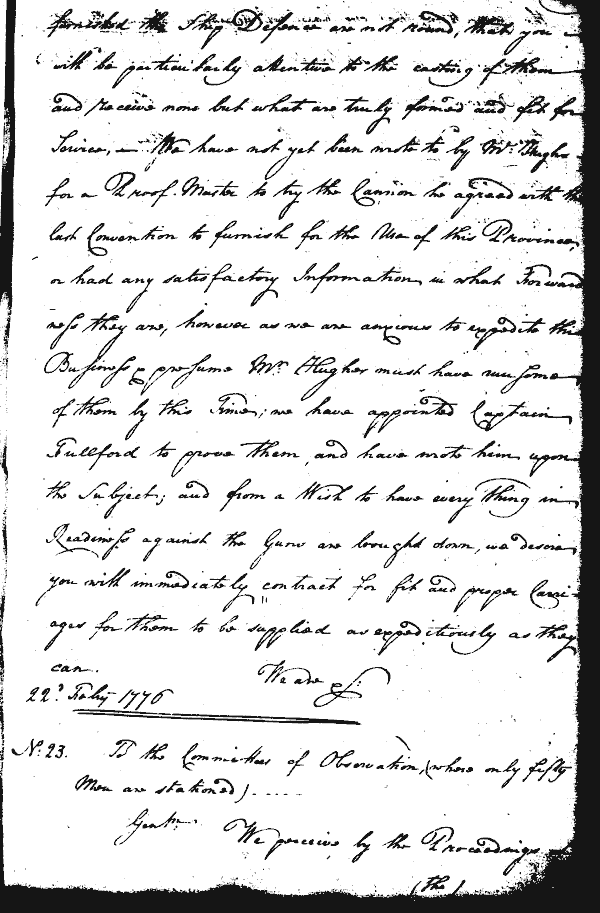 furnished the Ship Defence are not round, that you
will be particularly attentive to the casting of them
and receive none but what are truly formed and fit for
Service, — We have not yet been wrote to by Mr. Hughs
for a Proof Master to try the Cannon he agreed with the
last Convention to furnish for the Use of this Province,
or had any satisfactory Information in what Forward
ness they are, however as we are anxious to expedite this
Business & presume Mr. Hughes must have run some
of them by this Time; we have appointed Captain
Fullford to prove them, and have wrote him upon
the Subject; and from a Wish to have every Thing in
Readiness against the Guns are brought down, we desire
you will immediately contract for fit and proper Carri-
ages for them to be supplied as expeditiously as they
can. We are &c.
22d Feby 1776
No. 23. To the Committees of Observation, (where only fifty
Men are stationed) .....
Gentn.
We perceive by the Proceedings
(the)